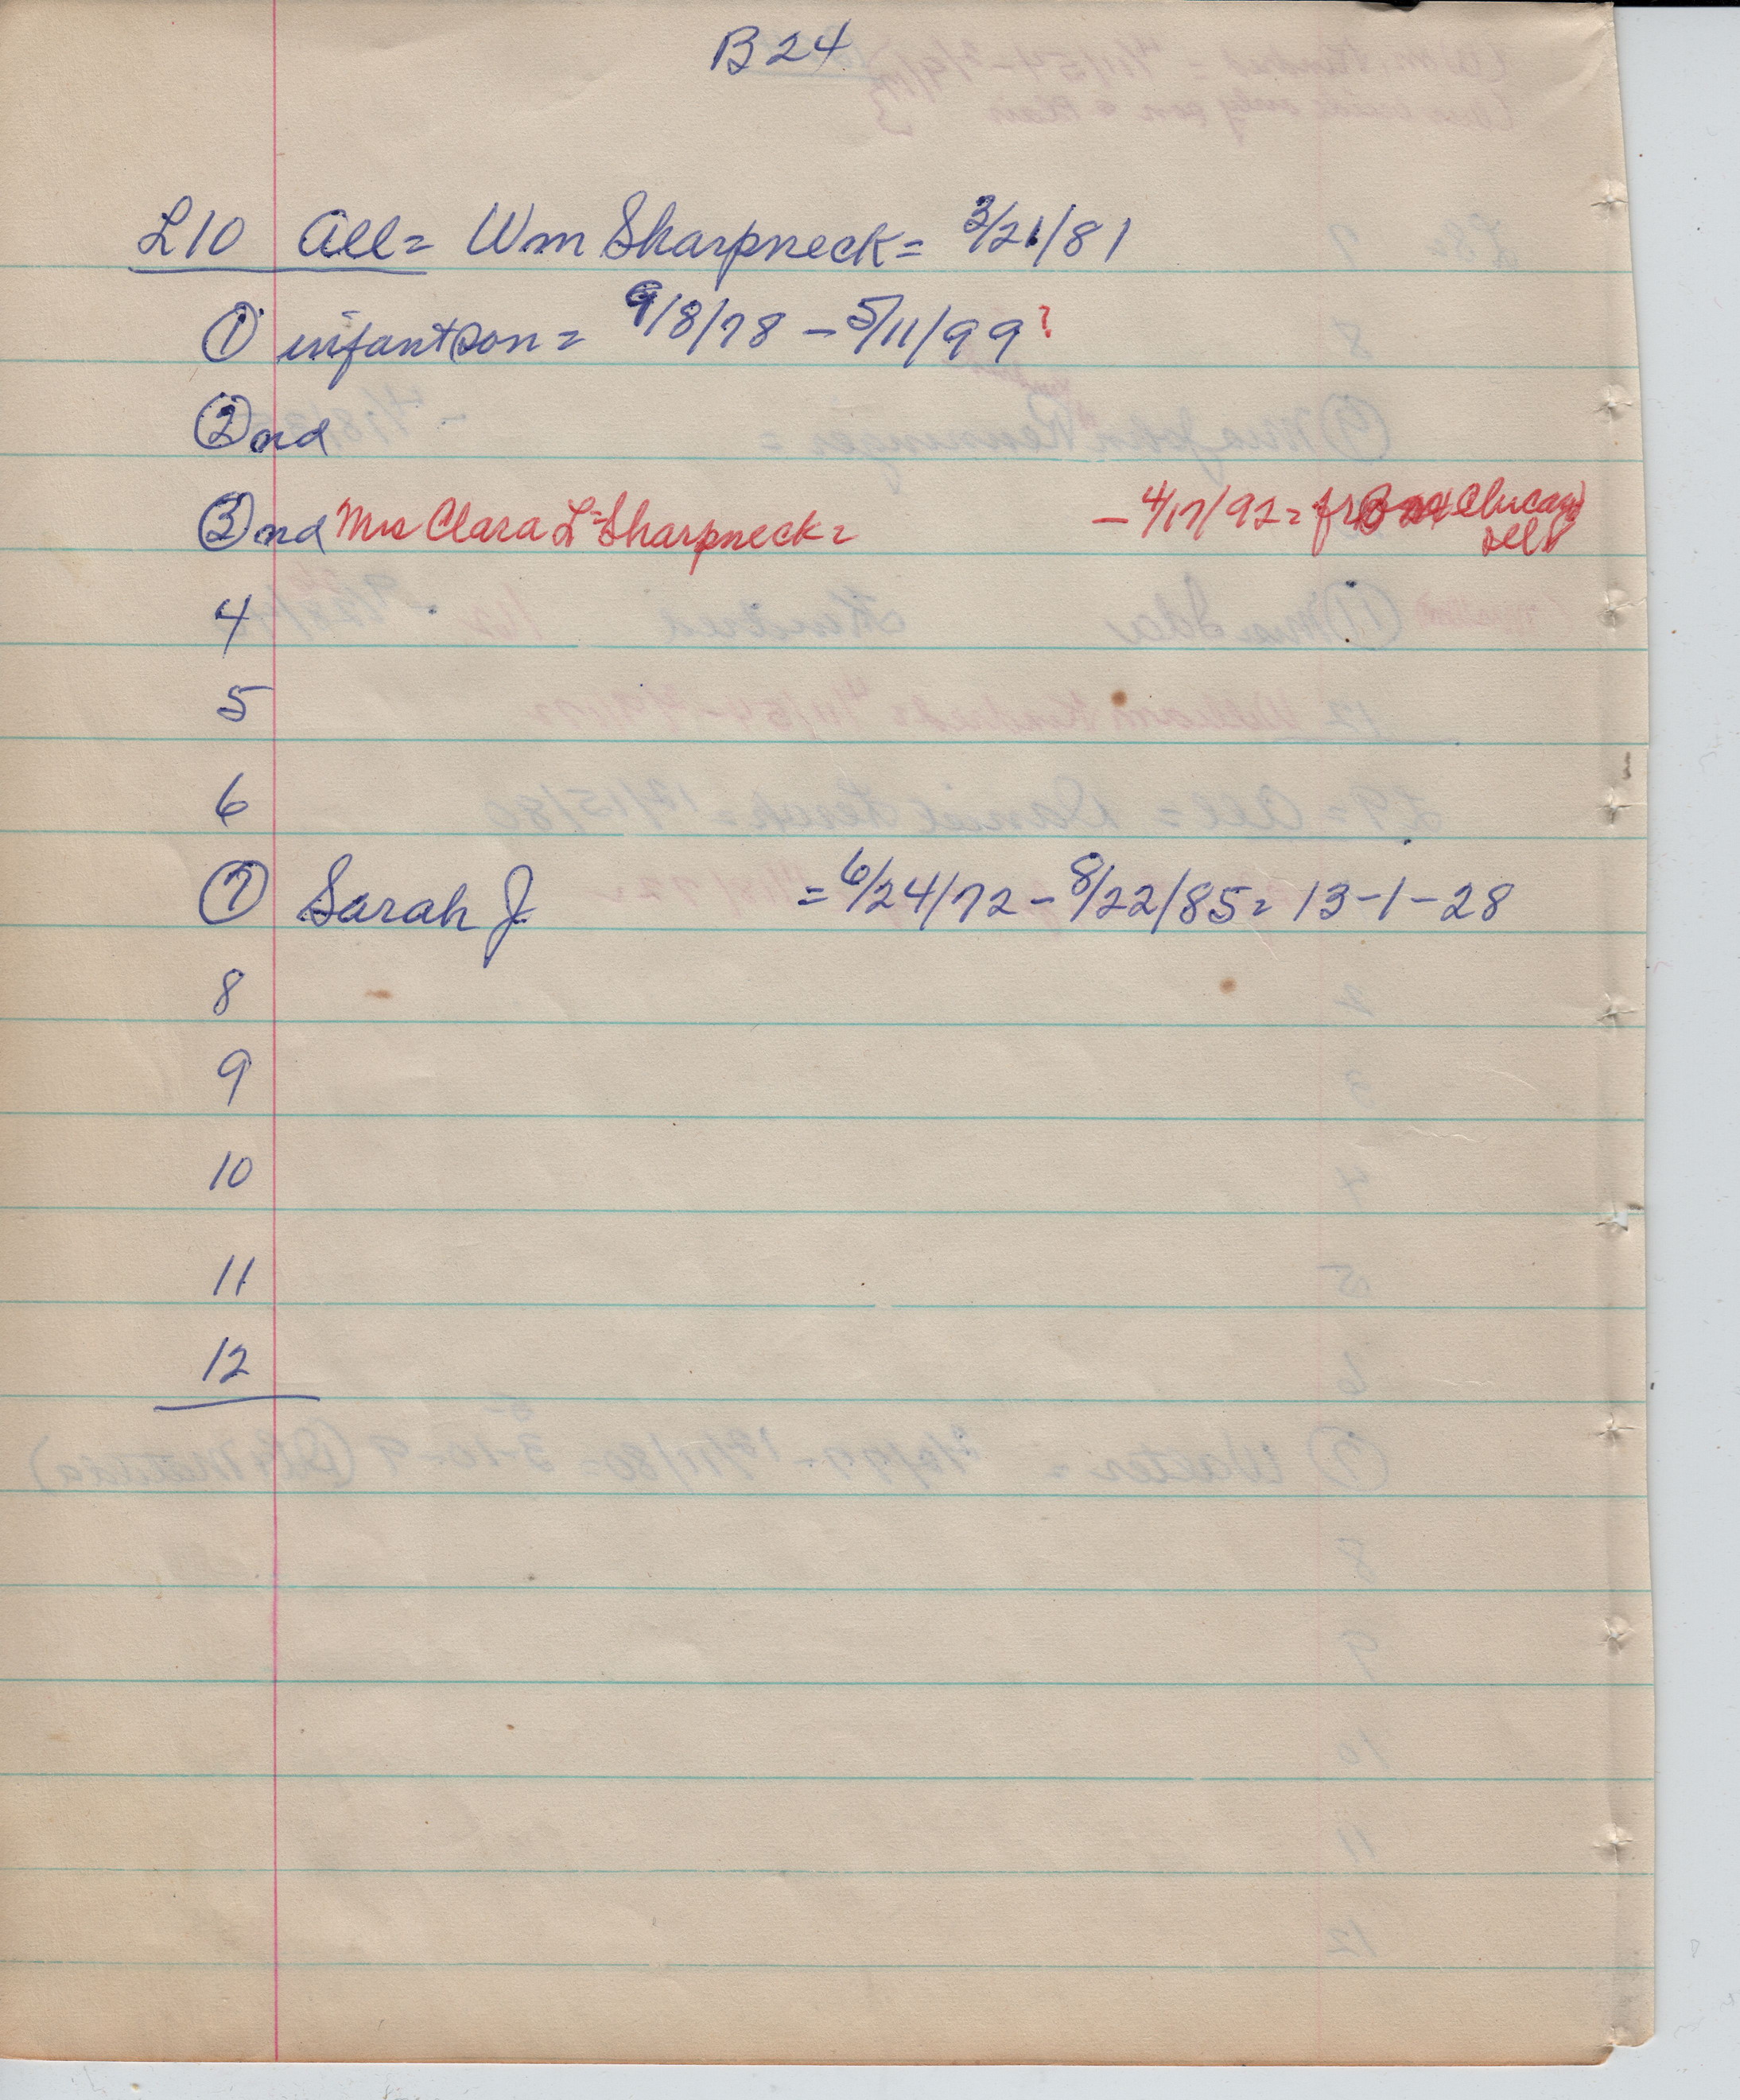 B24
L10 All = Wm Sharpneck = 3/21/81
① infant son = 9/8/78 - 5/11/99 ?
② nd
③ nd Mrs Clara L = Sharpneck = - 4/17/92 = fr Chicago
Ill
4
5
6
⑦ Sarah J = 6/24/72 - 8/22/85 = 13-1-28
8
9
10
11
12